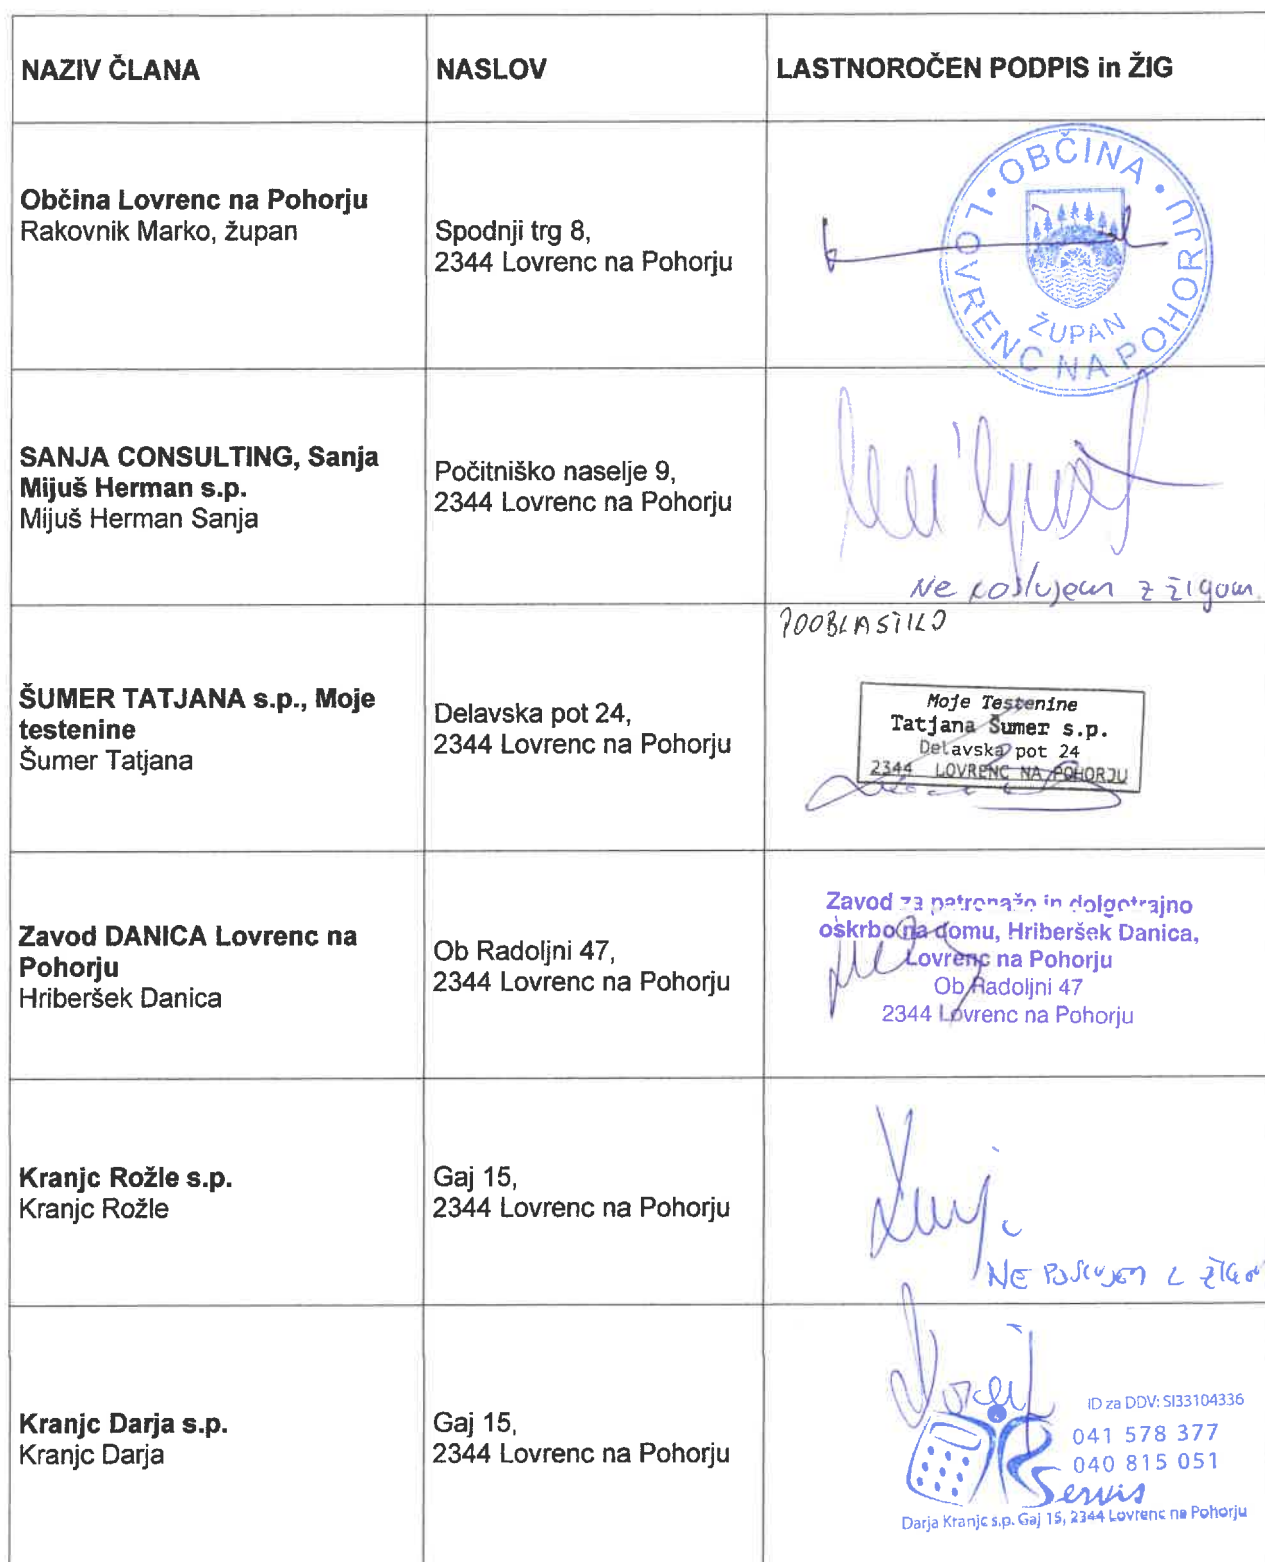 NAZIV ČLANA
NASLOV
LASTNOROČEN PODPIS in ŽIG
Občina Lovrenc na Pohorju
Rakovnik Marko, župan
Spodnji trg 8,
2344 Lovrenc na Pohorju
OBČINA
LOVRENC NA POHORJU
ŽUPAN
SANJA CONSULTING, Sanja
Mijuš Herman s.p.
Mijuš Herman Sanja
Počitniško naselje 9,
2344 Lovrenc na Pohorju
Ne poslujem z žigom.
ŠUMER TATJANA s.p., Moje
testenine
Šumer Tatjana
Delavska pot 24,
2344 Lovrenc na Pohorju
POOBLASTILO
Moje Testenine
Tatjana Šumer s.p.
Delavska pot 24
2344 LOVRENC NA POHORJU
Zavod DANICA Lovrenc na
Pohorju
Hriberšek Danica
Ob Radoljni 47,
2344 Lovrenc na Pohorju
Zavod za patronažo in dolgotrajno
oskrbo na domu, Hriberšek Danica,
Lovrenc na Pohorju
Ob Radoljni 47
2344 Lovrenc na Pohorju
Kranjc Rožle s.p.
Kranjc Rožle
Gaj 15,
2344 Lovrenc na Pohorju
NE POSLUJEM Z ŽIGOM
Kranjc Darja s.p.
Kranjc Darja
Gaj 15,
2344 Lovrenc na Pohorju
ID za DDV: SI33104336
041 578 377
040 815 051
Servis
Darja Kranjc s.p. Gaj 15, 2344 Lovrenc na Pohorju